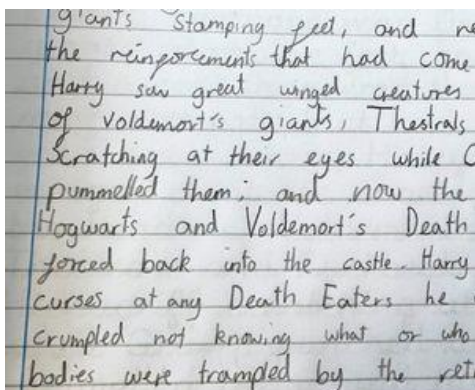 giants stamping feet, and
the reinforcements that had come
Harry saw great winged creatures
of Voldemort's giants, Thestrals
Scratching at their eyes while
pummelled them; and now the
Hogwarts and Voldemort's Death
forced back into the castle. Harry
curses at any Death Eaters he
crumpled not knowing what or who
bodies were trampled by the